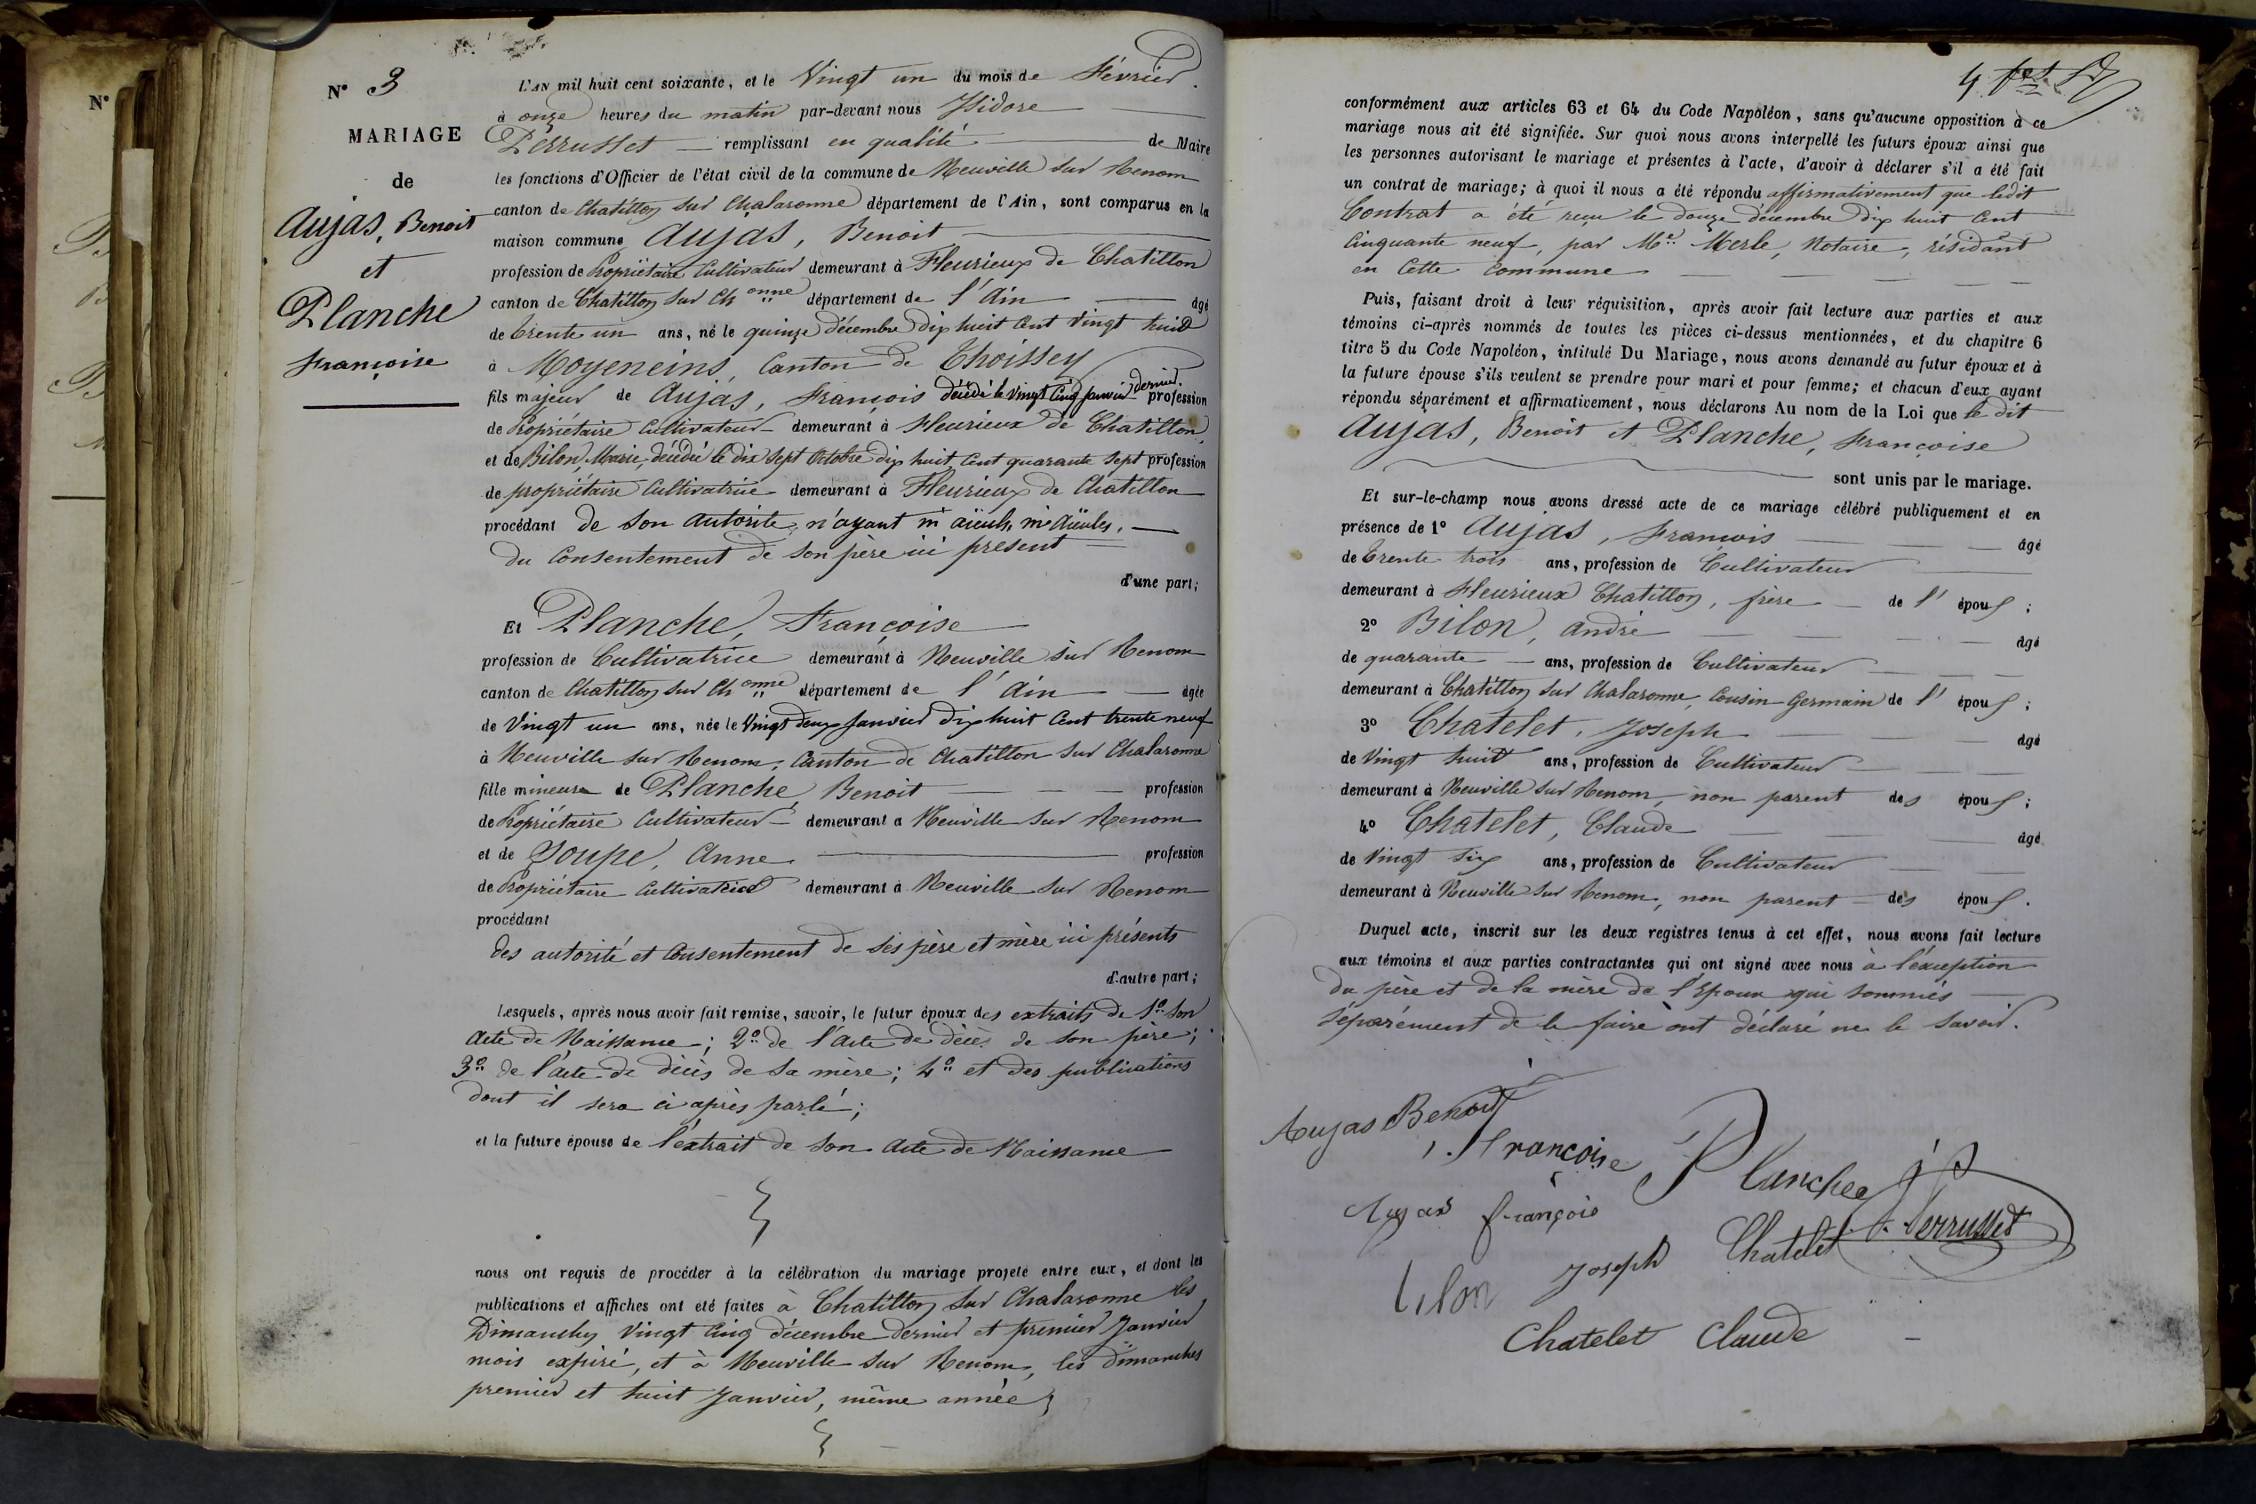 N° 3
MARIAGE
de
Aujas, Benoit
et
Planche
Françoise
N°
L'AN mil huit cent soixante, et le Vingt un du mois de Février.
à onze heures du matin par-devant nous Isidore
Perrusset remplissant en qualité de Maire
les fonctions d'Officier de l'état civil de la commune de Neuville sur Renom
canton de Chatillon sur Chalaronne département de l'Ain, sont comparus en la
maison commune Aujas, Benoit
profession de Propriétaire Cultivateur demeurant à Fleurieux de Chatillon
canton de Chatillon sur Ch onne département de l'Ain âgé
de trente un ans, né le quinze décembre dix huit Cent vingt huit
à Moyeneins, Canton de Thoissey
fils majeur de Aujas, François décédé le vingt cinq janvier dernier. profession
de Propriétaire Cultivateur demeurant à Fleurieux de Chatillon,
et de Bilon, Marie, décédée le dix sept Octobre dix huit Cent quarante sept profession
de propriétaire Cultivatrice demeurant à Fleurieux de Chatillon
procédant de son autorité, n'ayant ni aïeuls, ni Aïeules.
du Consentement de son père ici present
d'une part;
Et Planche, Françoise
profession de Cultivatrice demeurant à Neuville sur Renom
canton de Chatillon sur Ch onne département de l'Ain âgée
de Vingt un ans, née le Vingt deux Janvier Dix huit Cent trente neuf
à Neuville sur Renom, Canton de Chatillon sur Chalaronne
fille mineure de Planche, Benoit profession
de Propriétaire Cultivateur demeurant à Neuville sur Renom
et de Joupe, Anne profession
de Propriétaire Cultivatrice demeurant à Neuville sur Renom
procédant
des autorité et Consentement de ses père et mère ici présents
d'autre part;
Lesquels, après nous avoir fait remise, savoir, le futur époux des extraits de 1° son
Acte de Naissance; 2° de l'acte de décès de son père;
3° de l'acte de décès de sa mère; 4° et des publications
dont il sera ci après parlé;
et la future épouse de l'extrait de son acte de Naissance
nous ont requis de procéder à la célébration du mariage projeté entre eux, et dont les
publications et affiches ont été faites à Chatillon sur Chalaronne les
Dimanches Vingt Cinq décembre dernier et premier Janvier
mois expiré, et à Neuville sur Renom, les dimanches
premier et huit Janvier, même année
conformément aux articles 63 et 64 du Code Napoléon, sans qu'aucune opposition à ce
mariage nous ait été signifiée. Sur quoi nous avons interpellé les futurs époux ainsi que
les personnes autorisant le mariage et présentes à l'acte, d'avoir à déclarer s'il a été fait
un contrat de mariage; à quoi il nous a été répondu affirmativement que ledit
Contrat a été reçu le douze décembre dix huit Cent
Cinquante neuf, par Me Merle, Notaire, résidant
en Cette Commune
Puis, faisant droit à leur réquisition, après avoir fait lecture aux parties et aux
témoins ci-après nommés de toutes les pièces ci-dessus mentionnées, et du chapitre 6
titre 5 du Code Napoléon, intitulé Du Mariage, nous avons demandé au futur époux et à
la future épouse s'ils veulent se prendre pour mari et pour femme; et chacun d'eux ayant
répondu séparément et affirmativement, nous déclarons Au nom de la Loi que le dit
Aujas, Benoit et Planche, Françoise
sont unis par le mariage.
Et sur-le-champ nous avons dressé acte de ce mariage célébré publiquement et en
présence de 1° Aujas, François âgé
de trente trois ans, profession de Cultivateur
demeurant à Fleurieux Chatillon, frère de l' époux;
2° Bilon, andré âgé
de quarante ans, profession de Cultivateur
demeurant à Chatillon sur Chalaronne, Cousin Germain de l' époux;
3° Chatelet, Joseph âgé
de Vingt huit ans, profession de Cultivateur
demeurant à Neuville sur Renom, non parent des époux;
4° Chatelet, Claude âgé
de Vingt six ans, profession de Cultivateur
demeurant à Neuville sur Renom, non parent des époux.
Duquel acte, inscrit sur les deux registres tenus à cet effet, nous avons fait lecture
aux témoins et aux parties contractantes qui ont signé avec nous à l'éxception
du père et de la mère de l'Epoux qui sommés
séparément de le faire ont déclaré ne le savoir.
Aujas Benoit
Françoise Planche
Aujas françois
J. Perrusset
Joseph Chatelet
bilon
Chatelet Claude